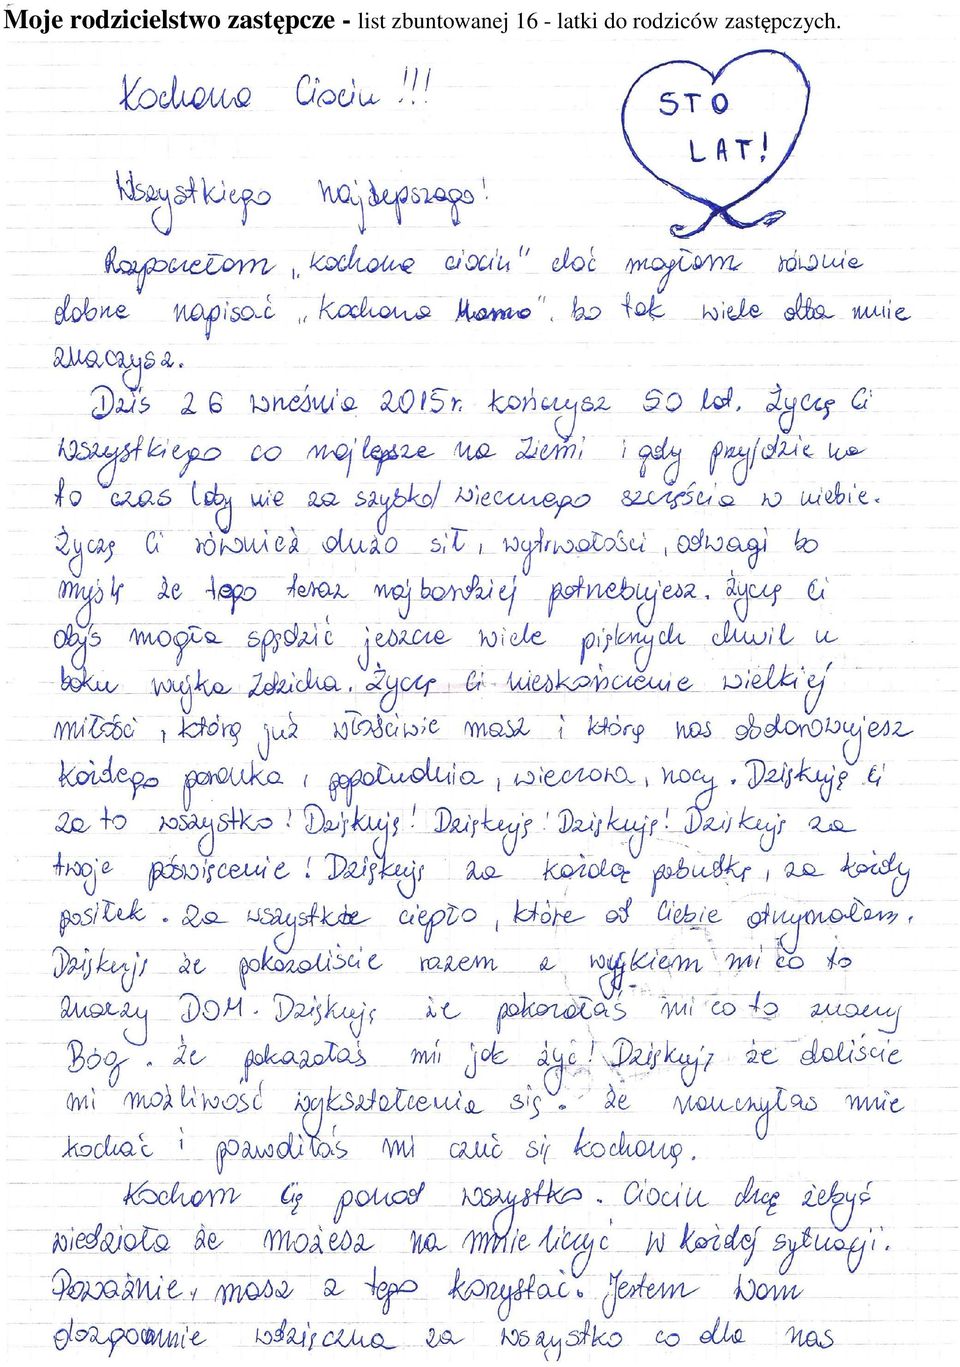 Moje rodzicielstwo zastępcze - list zbuntowanej 16 - latki do rodziców zastępczych.
Kochana Ciociu !!!
STO
LAT!
Wszystkiego najlepszego!
Rozpoczełam „kochana ciociu" choć mogłam równie
dobrze napisać „kochana Mamo", bo tak wiele dla mnie
znaczysz.
Dziś 26 września 2015r. kończysz 50 lat. Życzę Ci
wszystkiego co najlepsze na Ziemi i gdy przyjdzie na
to czas (oby nie za szybko) wiecznego szczęścia w niebie.
Życzę Ci również dużo sił, wytrwałości, odwagi bo
myślę że tego teraz najbardziej potrzebujesz. Życzę Ci
abyś mogła spędzić jeszcze wiele pięknych chwil u
boku wujka Zdzicha. Życzę Ci nieskończenie wielkiej
miłości, którą już właściwie masz i którą nas obdarowujesz
każdego poranka, popołudnia, wieczora, nocy. Dziękuję Ci
za to wszystko! Dziękuję! Dziękuję! Dziękuję! Dziękuję za
twoje poświęcenie! Dziękuję za każdą pobudkę, za każdy
posiłek. Za wszystkie ciepło, które od Ciebie otrzymałam.
Dziękuję że pokazaliście razem z wujkiem mi co to
znaczy DOM. Dziękuję że pokazałaś mi co to znaczy
Bóg. że pokazałaś mi jak żyć! Dziękuję że daliście
mi możliwość wykształcenia się. że nauczyłaś mnie
kochać i pozwoliłaś mi czuć się kochaną.
Kocham Cię ponad wszystko. Ciociu chcę żebyś
wiedziała że możesz na mnie liczyć w każdej sytuacji.
Poważnie, masz z tego korzystać. Jestem Wam
dozgonnie wdzięczna za wszystko co dla nas